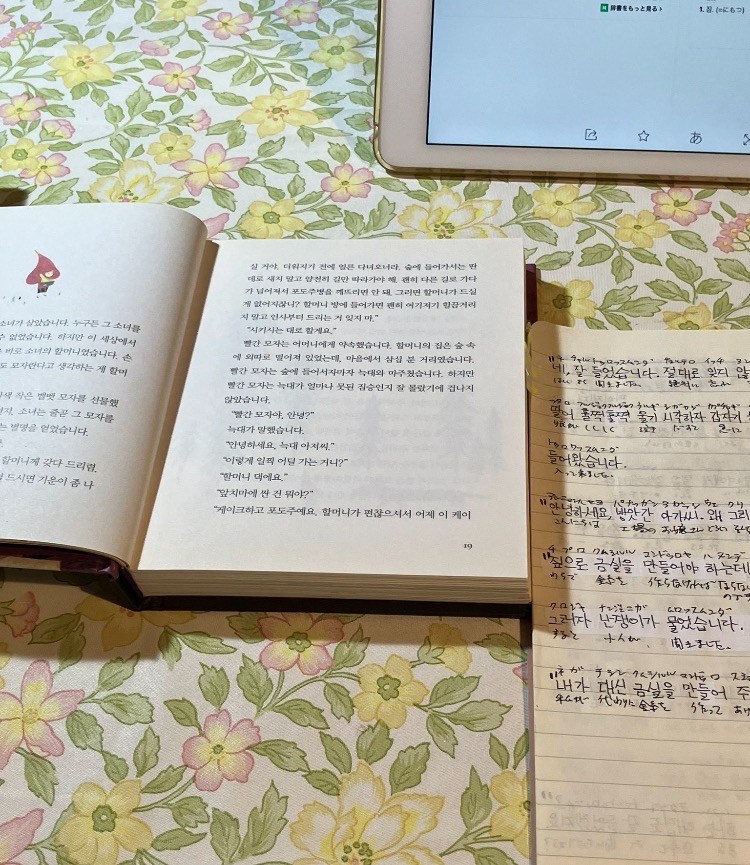 辞書をもっと見る›
1. 짐. (=にもつ)
あ
소녀가 살았습니다. 누구든 그 소녀를
수 없었습니다. 하지만 이 세상에서
바로 소녀의 할머니였습니다. 손
도 모자란다고 생각하는 게 할머
색 작은 벨벳 모자를 선물했
지, 소녀는 줄곧 그 모자를
는 별명을 얻었습니다.
할머니께 갖다 드리렴.
드시면 기운이 좀 나
실 거야. 더워지기 전에 얼른 다녀오너라. 숲에 들어가서는 딴
데로 새지 말고 얌전히 길만 따라가야 해. 괜히 다른 길로 가다
가 넘어져서 포도주병을 깨뜨리면 안 돼. 그러면 할머니가 드실
게 없어지잖니? 할머니 방에 들어가면 괜히 여기저기 힐끔거리
지 말고 인사부터 드리는 거 잊지 마.”
“시키시는 대로 할게요.”
빨간 모자는 어머니에게 약속했습니다. 할머니의 집은 숲 속
에 외따로 떨어져 있었는데, 마을에서 삼십 분 거리였습니다.
빨간 모자는 숲에 들어서자마자 늑대와 마주쳤습니다. 하지만
빨간 모자는 늑대가 얼마나 못된 짐승인지 잘 몰랐기에 겁나지
않았습니다.
“빨간 모자야, 안녕?”
늑대가 말했습니다.
“안녕하세요, 늑대 아저씨.”
“이렇게 일찍 어딜 가는 거니?”
“할머니 댁에요.”
“앞치마에 싼 건 뭐야?”
“케이크하고 포도주예요. 할머니가 편찮으셔서 어제 이 케이
19
네, 잘 들었습니다. 절대로 잊지 않
はい よく 聞きました。 絶対に
훌쩍훌쩍 울기 시작하자 갑자기
トゥロワッスムニダ
들어왔습니다.
入って来ました。
"안녕하세요, 방앗간 아가씨. 왜 그리
こんにちは 工場の お嬢さん どうして
"짚으로 금실을 만들어야 하는데
わらで 金糸を 作らなければ ならない
クロジャ ナンジェンイガ ムロッスムニダ
그러자 난쟁이가 물었습니다.
すると 小人が、 聞きました。
"내가 대신 금실을 만들어 주
私が 代わりに 金糸を 作って あげ